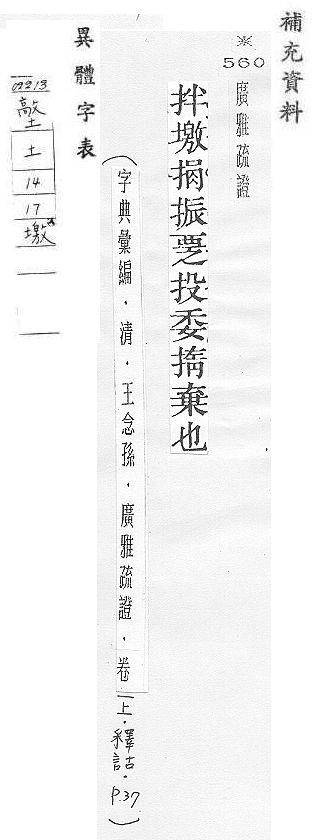 補充資料
※
560
廣雅疏證
拌墽捐振𡊅投委揹棄也
(字典彙編．清．王念孫．廣雅疏證．卷一上．釋詁．P.37)
異體字表
09213
土
14
17
墽